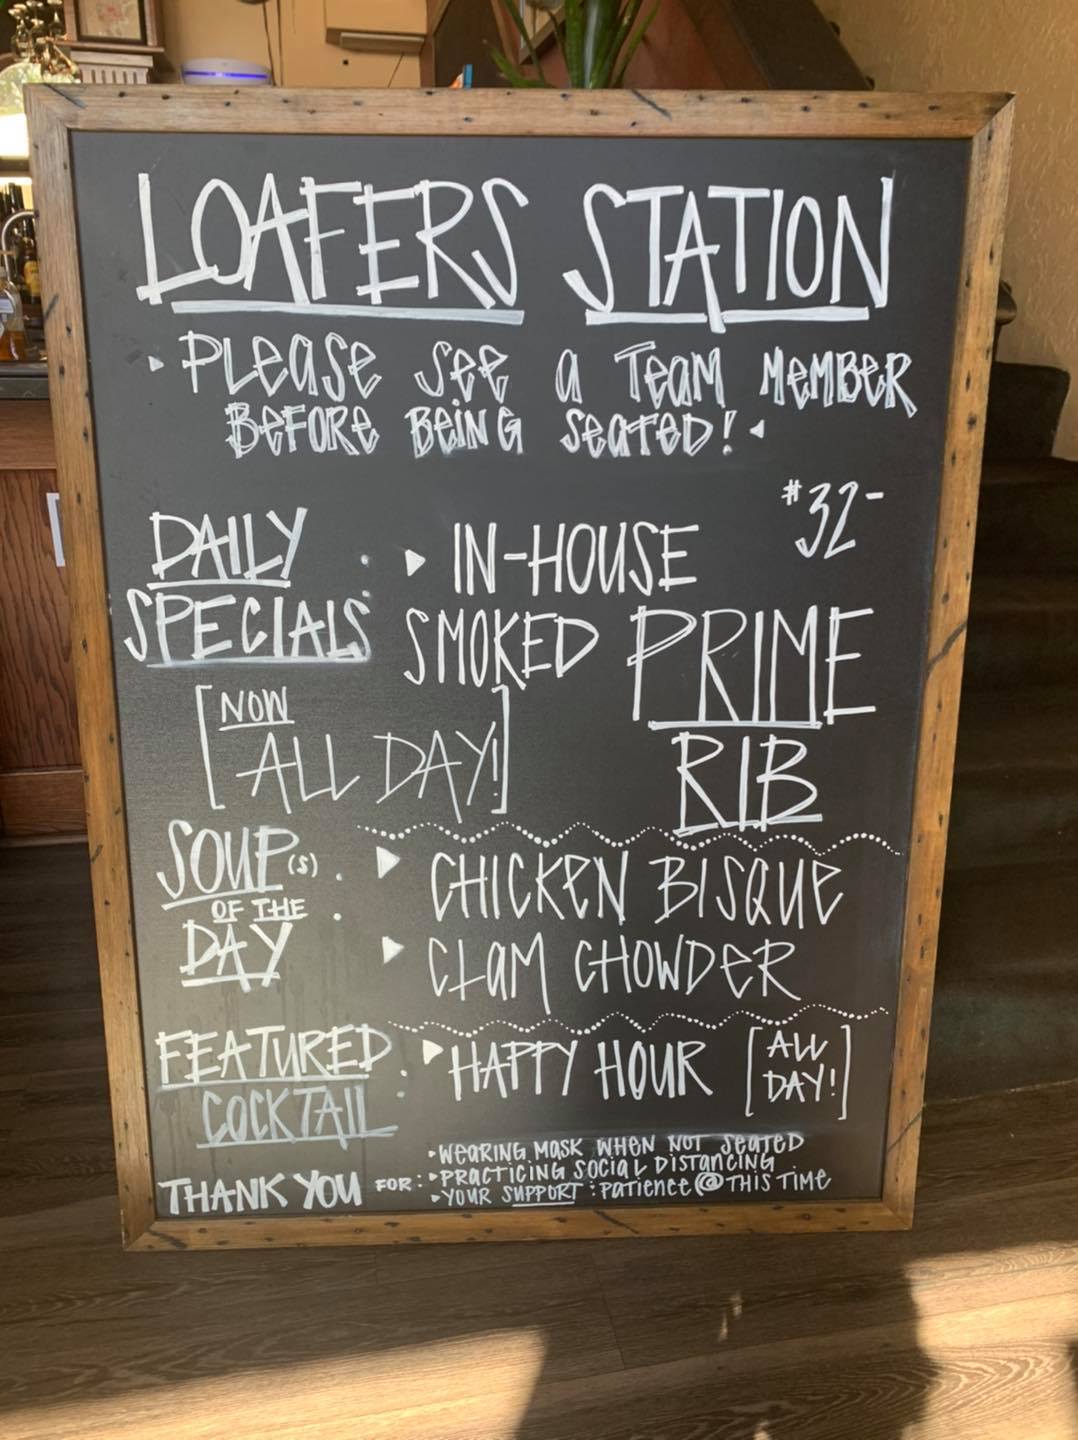 LOAFERS STATION
PLEASE SEE A TEAM MEMBER
BEFORE BEING SEATED!
DAILY
SPECIALS :
[NOW
ALL DAY!]
$32-
IN-HOUSE
SMOKED PRIME
RIB
SOUP(S)
OF THE
DAY :
CHICKEN BISQUE
CLAM CHOWDER
FEATURED
COCKTAIL :
HAPPY HOUR [ALL
DAY!]
THANK YOU FOR :
• WEARING MASK WHEN NOT SEATED
• PRACTICING SOCIAL DISTANCING
• YOUR SUPPORT : PATIENCE @ THIS TIME